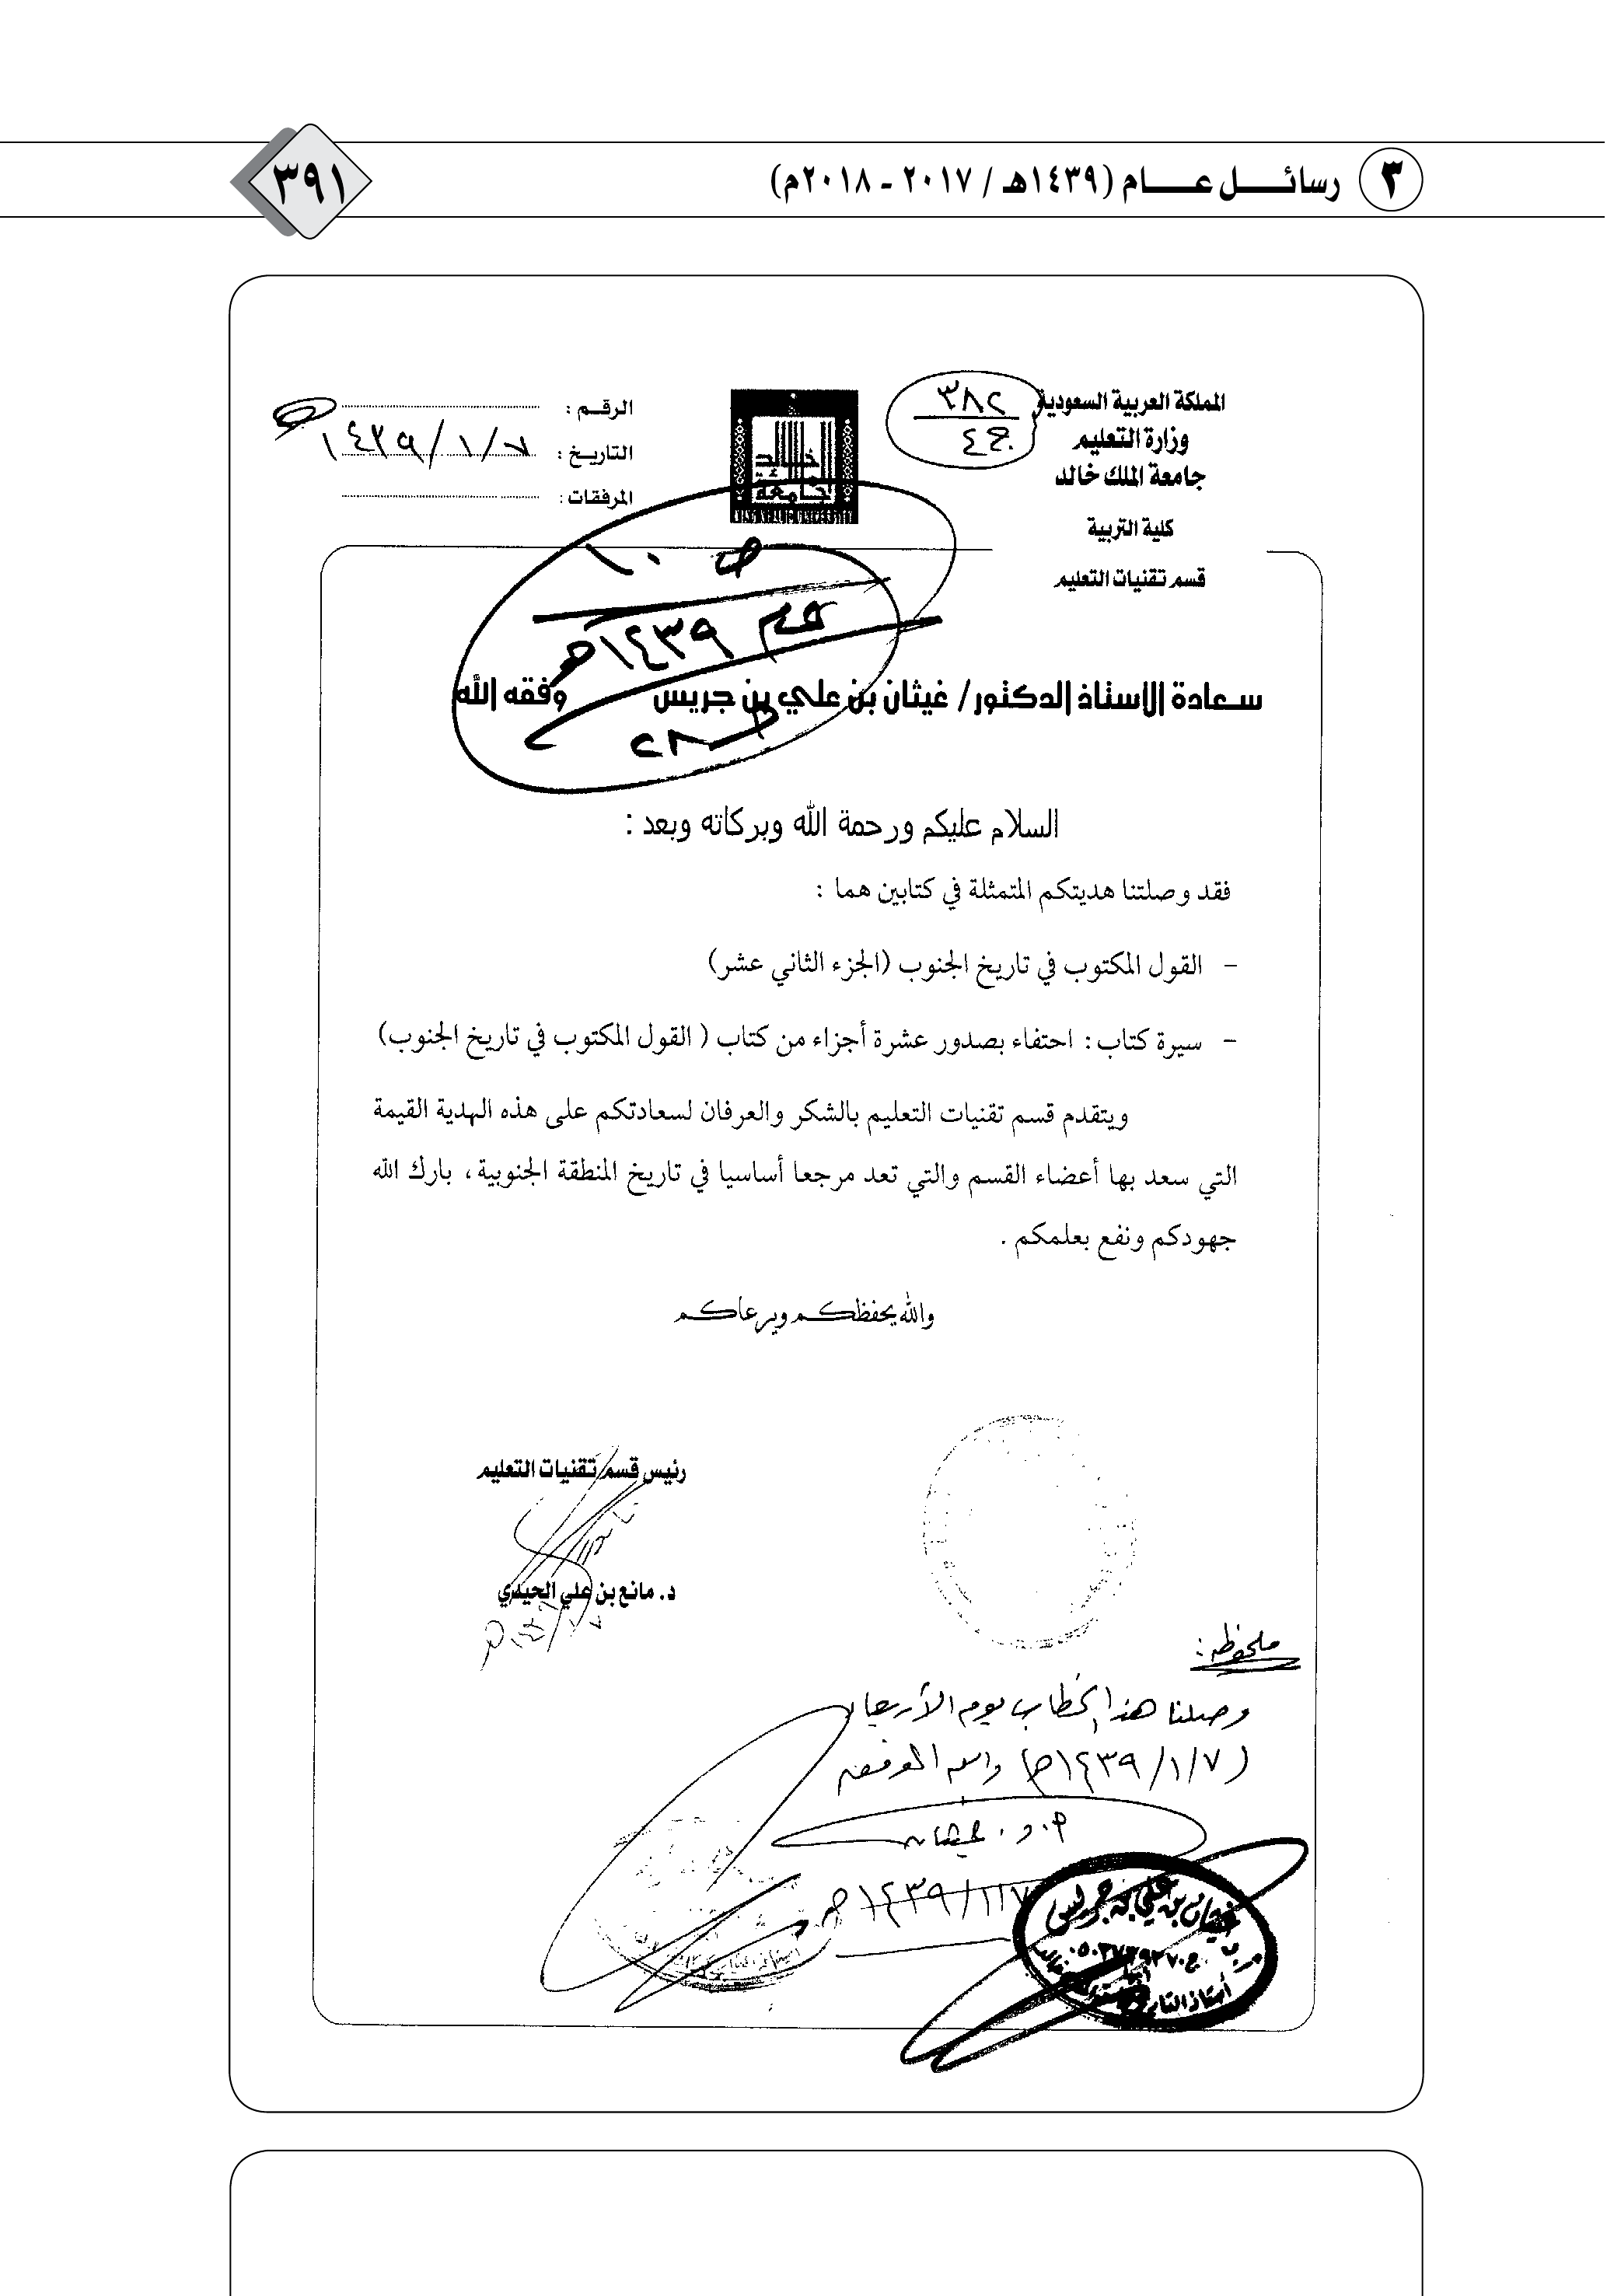 ٣ رسائـــل عـــام (١٤٣٩هـ / ٢٠١٧ - ٢٠١٨م)
٣٩١
المملكة العربية السعودية
وزارة التعليم
جامعة الملك خالد
كلية التربية
قسم تقنيات التعليم
٣٨٢
جامعة
خالد
الرقـم :
التاريـخ : ١٤٣٩/١/٧
المرفقات :
١٤٣٩هـ
سـعادة الاستاذ الدكتور/ غيثان بن علي بن جريس وفقه الله
السلام عليكم ورحمة الله وبركاته وبعد :
فقد وصلتنا هديتكم المتمثلة في كتابين هما :
- القول المكتوب في تاريخ الجنوب (الجزء الثاني عشر)
- سيرة كتاب : احتفاء بصدور عشرة أجزاء من كتاب ( القول المكتوب في تاريخ الجنوب)
ويتقدم قسم تقنيات التعليم بالشكر والعرفان لسعادتكم على هذه الهدية القيمة
التي سعد بها أعضاء القسم والتي تعد مرجعا أساسيا في تاريخ المنطقة الجنوبية، بارك الله
جهودكم ونفع بعلمكم .
والله يحفظكـم ويرعاكـم
رئيس قسم تقنيات التعليم
د. مانع بن علي الحيدري
ملحوظه :
وصلنا هذا الخطاب يوم الأربعاء
(١٤٣٩/١/٧هـ) والله الموفق
أ. د. غيثان
١٤٣٩/١/٧هـ
غيثان بن علي بن جريس